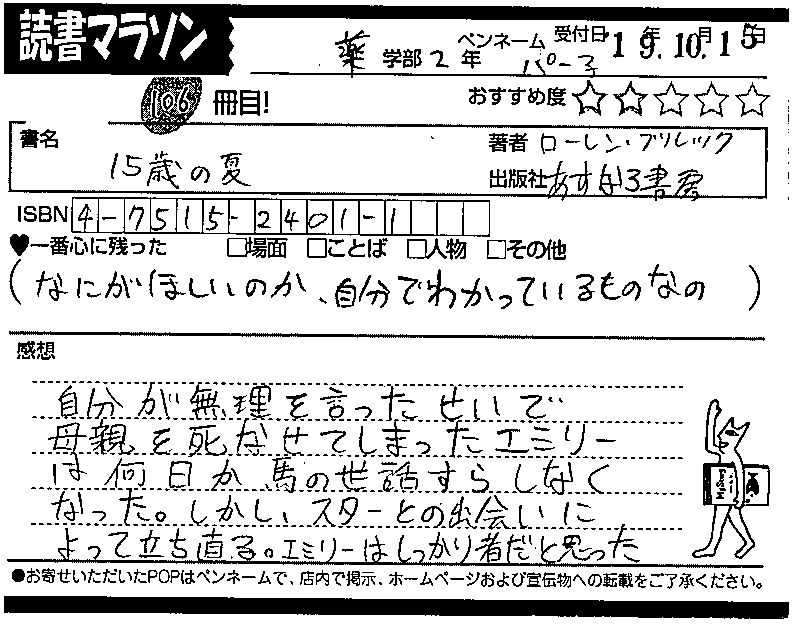 読書マラソン
薬 学部 2 年
ペンネーム パー子
受付日 19.年10.月15日
106 冊目!
おすすめ度 ☆☆☆☆☆
書名 15歳の夏
著者 ローレン・ブリレック
出版社 あすなろ書房
ISBN 4-7515-2401-1
♥一番心に残った □場面 □ことば □人物 □その他
(なにがほしいのか、自分でわかっているものなの)
感想
自分が無理を言ったせいで
母親を死なせてしまったエミリー
は何日か馬の世話すらしなく
なった。しかし、スターとの出会いに
よって立ち直る。エミリーはしっかり者だと思った
●お寄せいただいたPOPはペンネームで、店内で掲示、ホームページおよび宣伝物への転載をご了承ください。